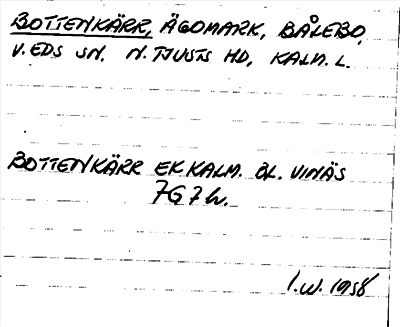 BOTTENKÄRR, ÄGOMARK, BÅLEBO,
V. EDS SN. N. TJUSTS HD, KALM. L.
BOTTENKÄRR EK. KALM. BL. VINÄS
7G 7h.
I.W. 1958